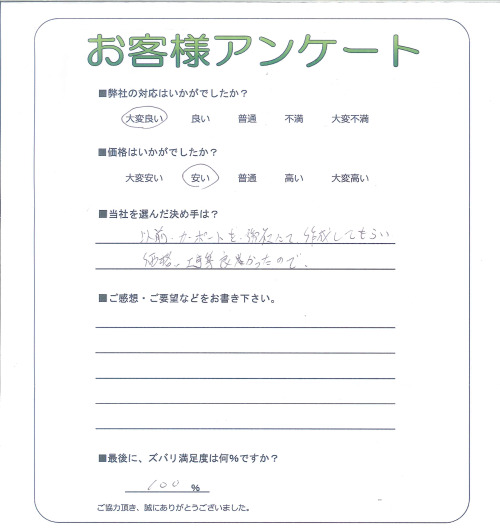 お客様アンケート
■弊社の対応はいかがでしたか？
大変良い 良い 普通 不満 大変不満
■価格はいかがでしたか？
大変安い 安い 普通 高い 大変高い
■当社を選んだ決め手は？
以前、カーポートを、御社にて、作成してもらい
価格、工事等良かったので、
■ご感想・ご要望などをお書き下さい。
■最後に、ズバリ満足度は何%ですか？
100 %
ご協力頂き、誠にありがとうございました。